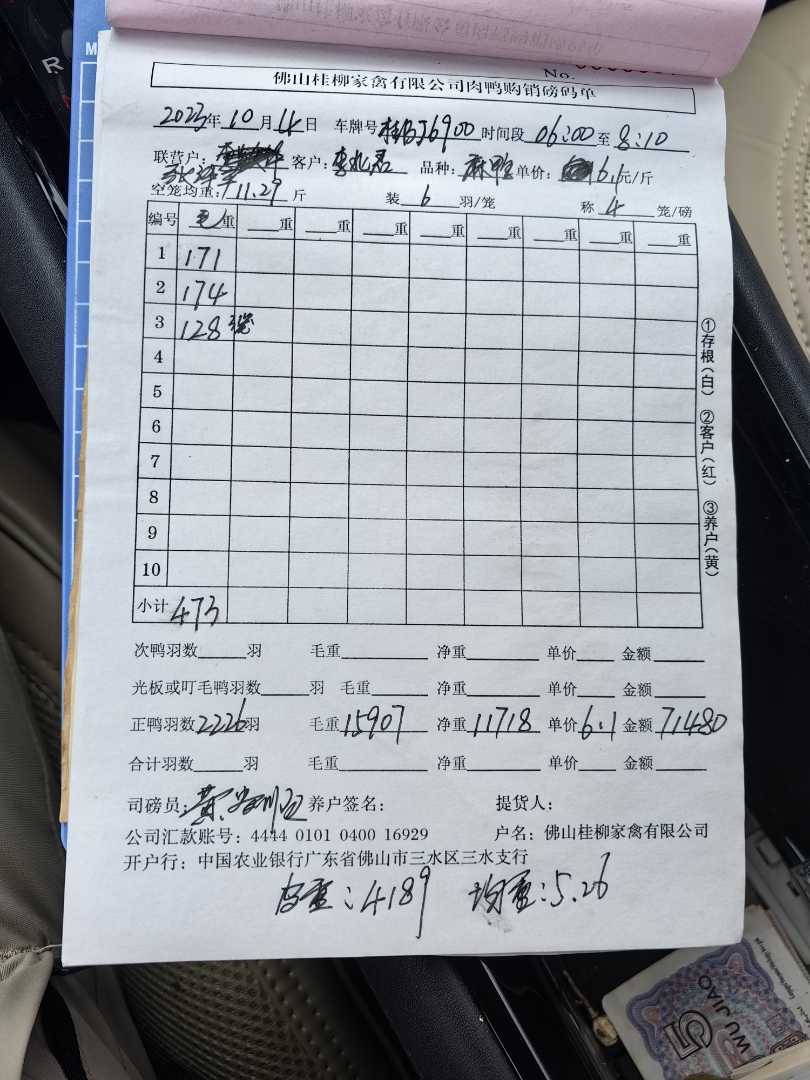 No.
佛山桂柳家禽有限公司肉鸭购销磅码单
2023年10月14日 车牌号 6900 时间段 06:00 至 8:10
联营户: 客户: 品种: 麻鸭 单价: 6.1元/斤
空笼均重: 11.29 斤 装 6 羽/笼 称 4 笼/磅
编号 毛重 重 重 重 重 重 重 重
1 171
2 174
3 128
4
5
6
7
8
9
10
小计 473
①存根(白) ②客户(红) ③养户(黄)
次鸭羽数 羽 毛重 净重 单价 金额
光板或叮毛鸭羽数 羽 毛重 净重 单价 金额
正鸭羽数2226羽 毛重15907 净重11718 单价6.1 金额71480
合计羽数 羽 毛重 净重 单价 金额
司磅员: 黄 养户签名: 提货人:
公司汇款账号: 4444 0101 0400 16929 户名: 佛山桂柳家禽有限公司
开户行: 中国农业银行广东省佛山市三水区三水支行
皮重:4189 均重:5.26
R
M
5
WU JIAO